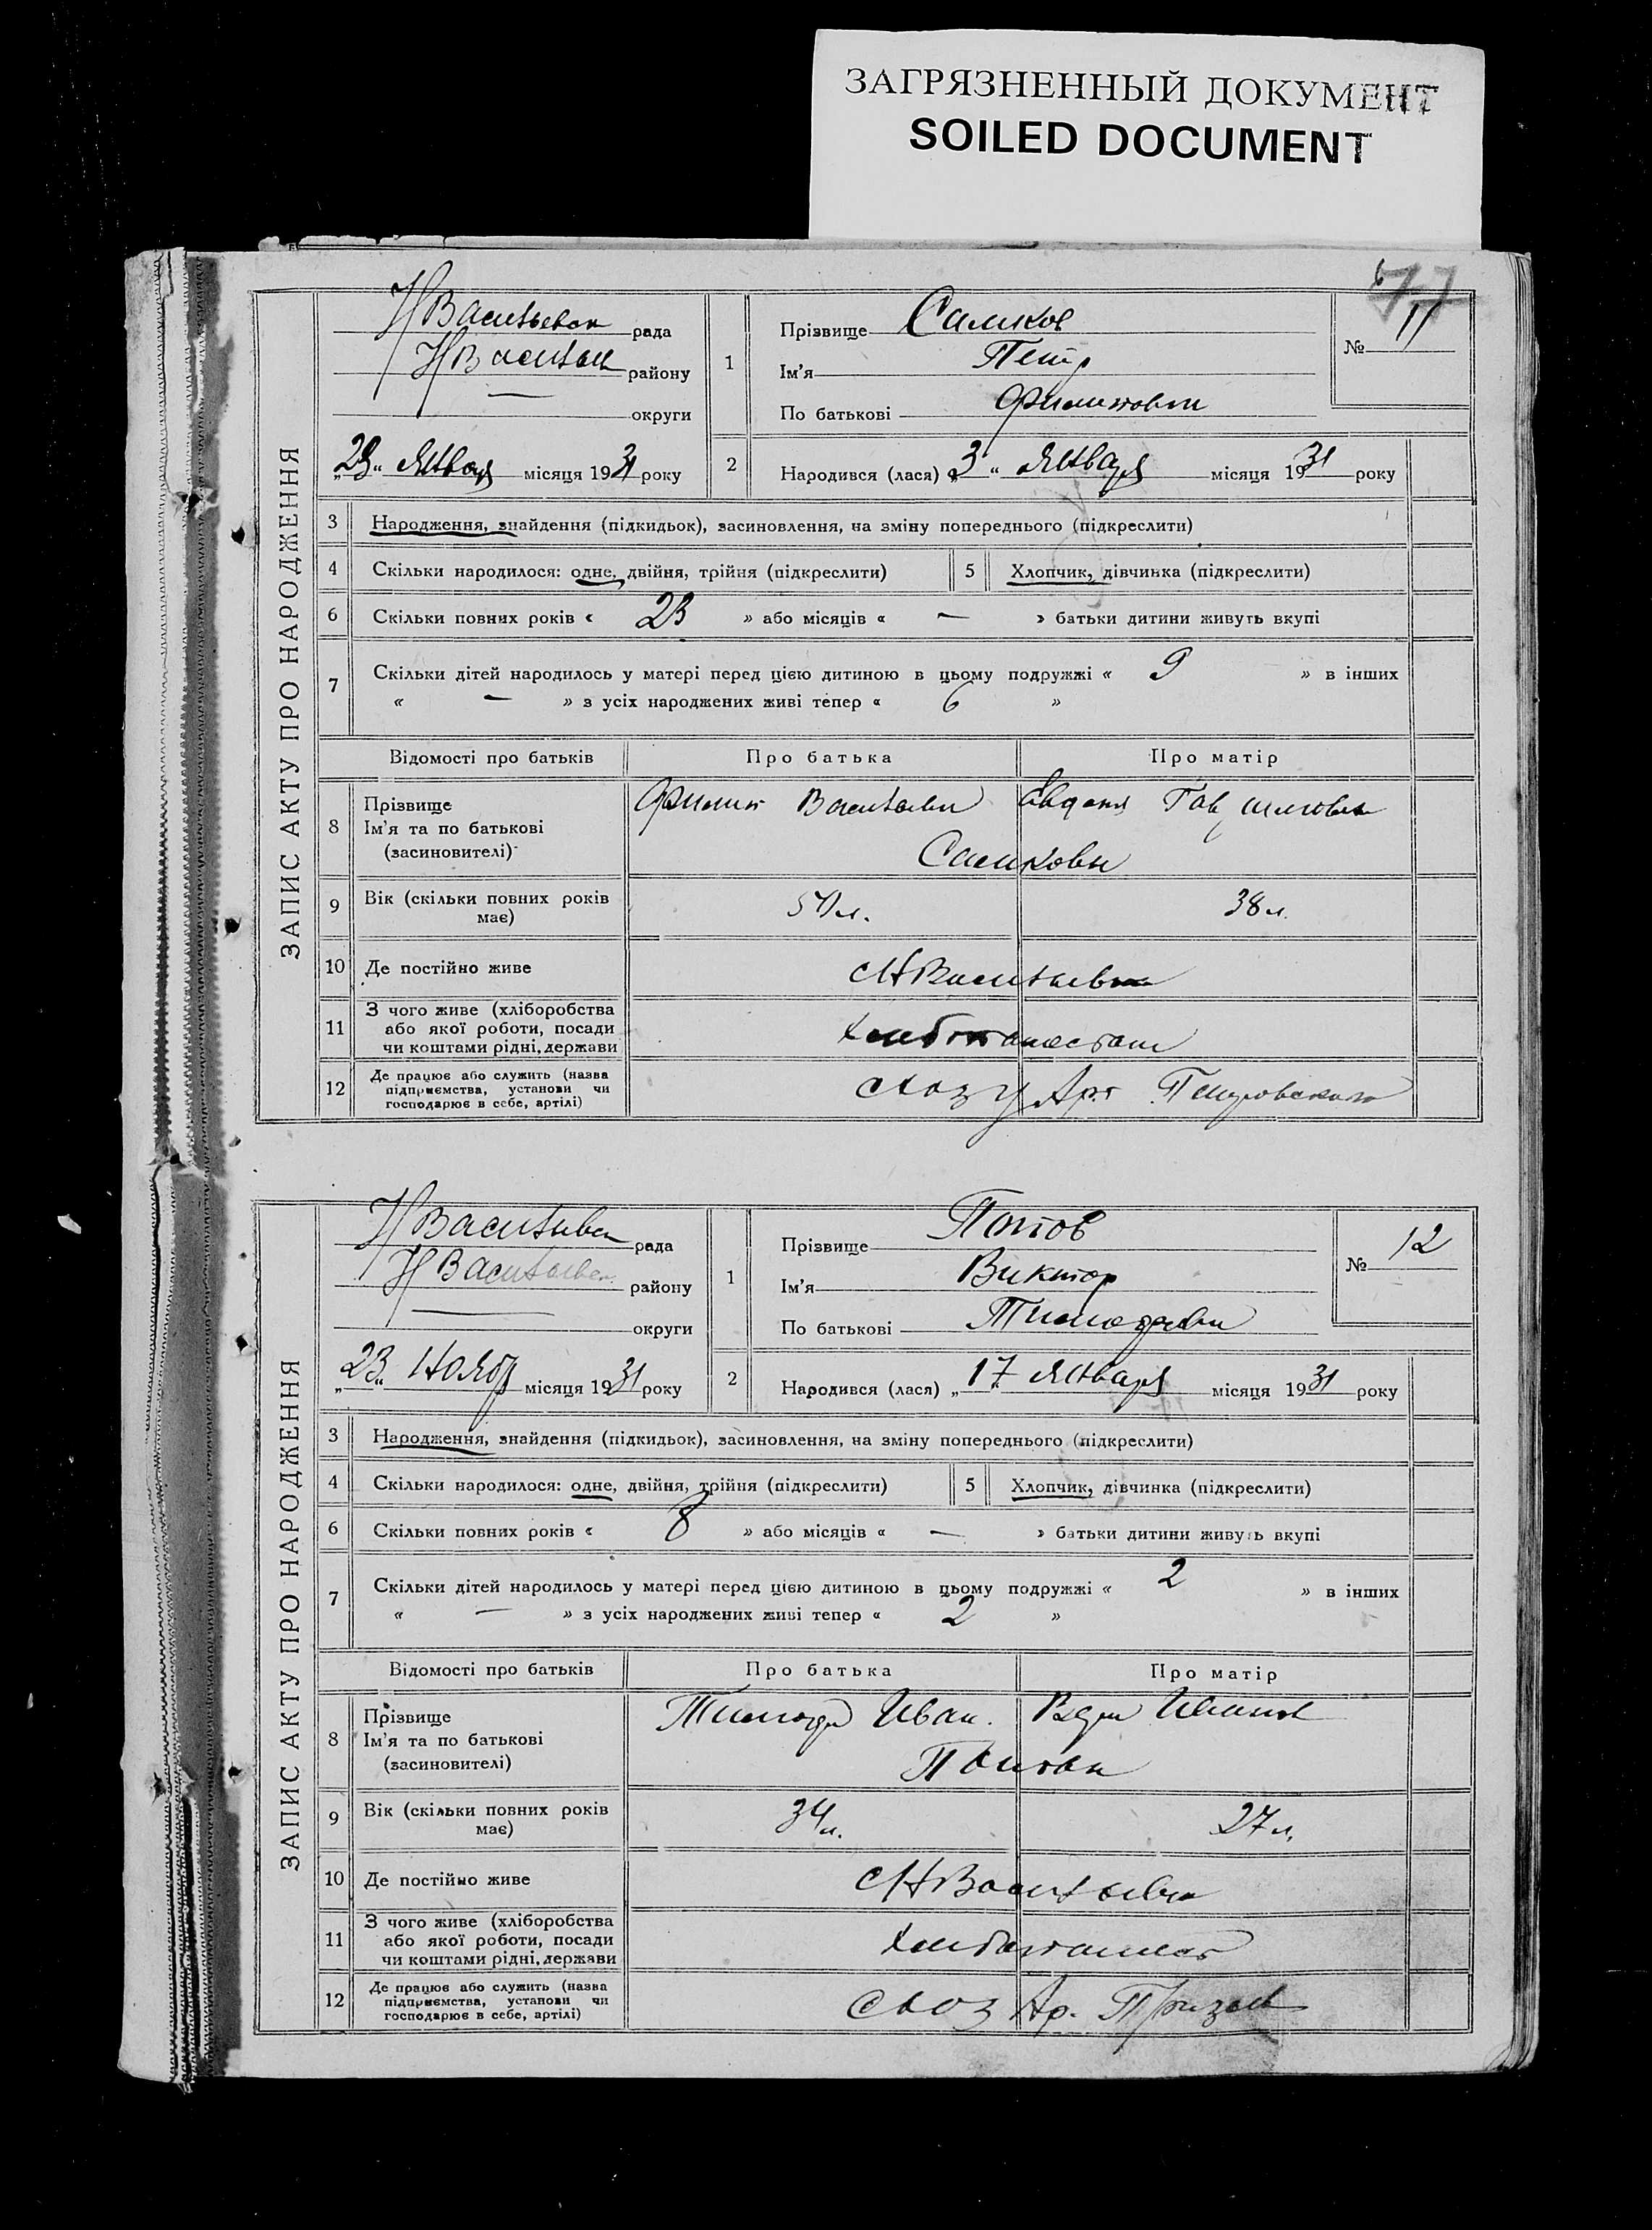 ЗАГРЯЗНЕННЫЙ ДОКУМЕНТ
SOILED DOCUMENT
ЗАПИС АКТУ ПРО НАРОДЖЕННЯ
рада
району
округи
"23" Января місяця 1931 року
1
Прізвище Самков
Ім'я Петр
По батькові Филиппович
№ 11
2
Народився (лася) "3" Января місяця 1931 року
3 Народження, знайдення (підкидьок), засиновлення, на зміну попереднього (підкреслити)
4 Скільки народилося: одне, двійня, трійня (підкреслити)
5 Хлопчик, дівчинка (підкреслити)
6 Скільки повних років « 23 » або місяців « — » батьки дитини живуть вкупі
7 Скільки дітей народилось у матері перед цією дитиною в цьому подружжі « 9 » в інших
« — » з усіх народжених живі тепер « 6 »
Відомості про батьків
Про батька
Про матір
8 Прізвище
Ім'я та по батькові
(засиновителі)
Филип Васильевич
Евдокия
Самковы
9 Вік (скільки повних років
має)
л.
38 л.
10 Де постійно живе
11 З чого живе (хліборобства
або якої роботи, посади
чи коштами рідні, держави
12 Де працює або служить (назва
підприємства, установи чи
господарює в себе, артілі)
ЗАПИС АКТУ ПРО НАРОДЖЕННЯ
рада
району
округи
"23" Нояб місяця 1931 року
1
Прізвище Попов
Ім'я Виктор
По батькові Тимофеевич
№ 12
2
Народився (лася) "17" Января місяця 1931 року
3 Народження, знайдення (підкидьок), засиновлення, на зміну попереднього (підкреслити)
4 Скільки народилося: одне, двійня, трійня (підкреслити)
5 Хлопчик, дівчинка (підкреслити)
6 Скільки повних років « 8 » або місяців « — » батьки дитини живуть вкупі
7 Скільки дітей народилось у матері перед цією дитиною в цьому подружжі « 2 » в інших
« — » з усіх народжених живі тепер « 2 »
Відомості про батьків
Про батька
Про матір
8 Прізвище
Ім'я та по батькові
(засиновителі)
Тимофей Иван.
9 Вік (скільки повних років
має)
34 л.
27 л.
10 Де постійно живе
11 З чого живе (хліборобства
або якої роботи, посади
чи коштами рідні, держави
12 Де працює або служить (назва
підприємства, установи чи
господарює в себе, артілі)